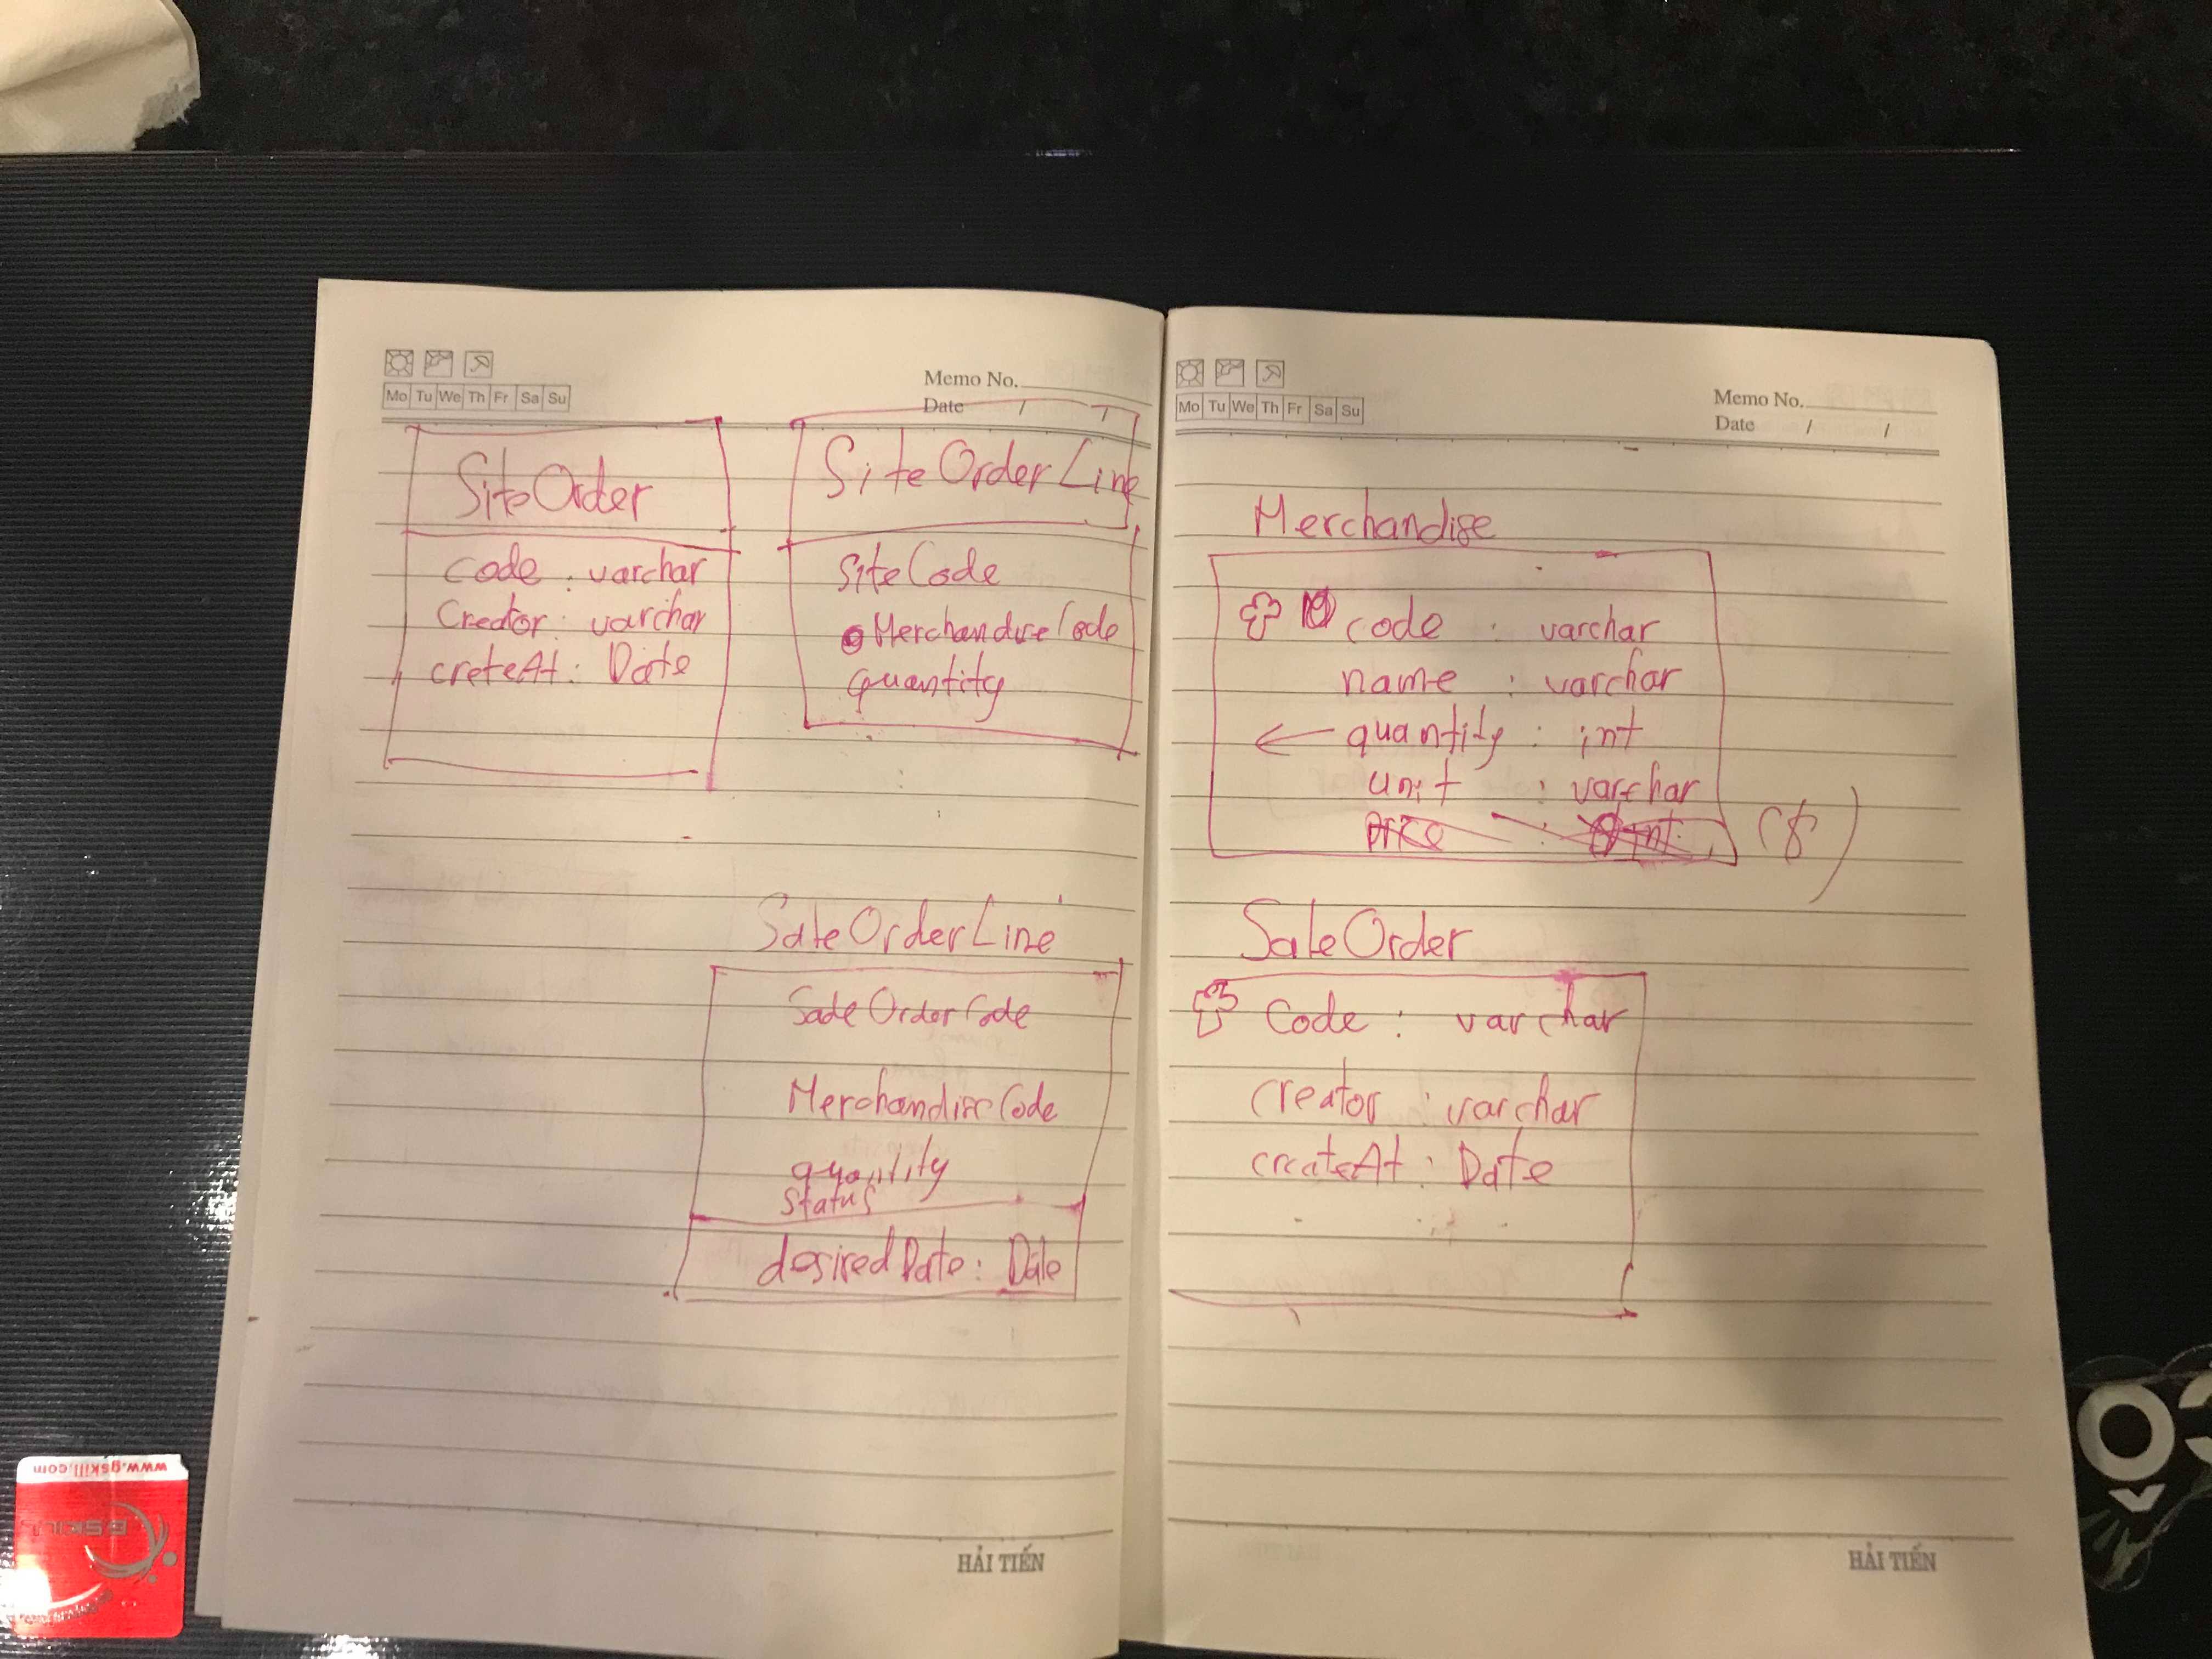 Mo Tu We Th Fr Sa Su
Memo No.
Date / /
SiteOrder
code : varchar
Creator : varchar
creteAt : Date
SiteOrderLine
siteCode
MerchandiseCode
quantity
SaleOrderLine
SaleOrderCode
MerchandiseCode
quantity
status
desiredDate : Date
HẢI TIẾN
Mo Tu We Th Fr Sa Su
Memo No.
Date / /
Merchandise
code : varchar
name : varchar
← quantity : int
unit : varchar
price : int ($)
SaleOrder
Code : varchar
creator : varchar
createAt : Date
HẢI TIẾN
www.gskill.com
G.SKILL